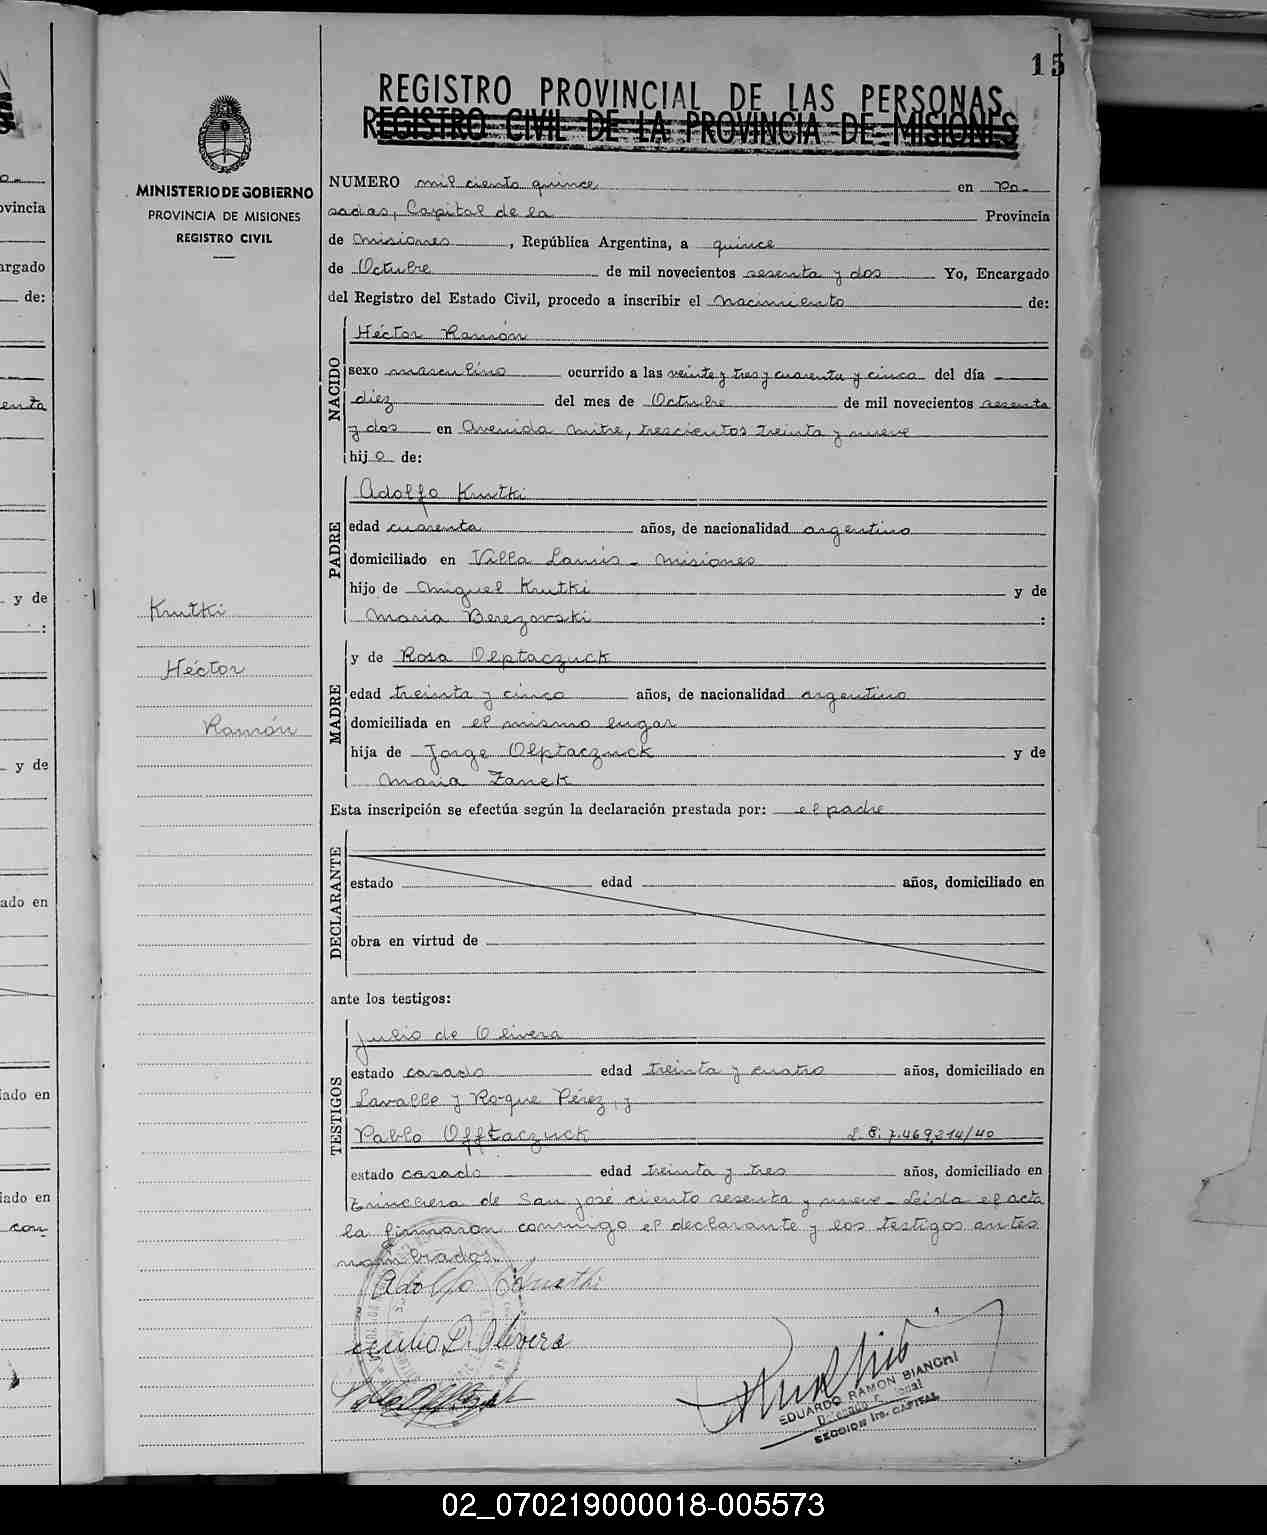 15
REGISTRO PROVINCIAL DE LAS PERSONAS
REGISTRO CIVIL DE LA PROVINCIA DE MISIONES
MINISTERIO DE GOBIERNO
PROVINCIA DE MISIONES
REGISTRO CIVIL
NUMERO mil ciento quince en Po-
sadas, Capital de la Provincia
de Misiones, República Argentina, a quince
de Octubre de mil novecientos sesenta y dos Yo, Encargado
del Registro del Estado Civil, procedo a inscribir el nacimiento de:
NACIDO
Héctor Ramón
sexo masculino ocurrido a las veinte y tres y cuarenta y cinco del día
diez del mes de Octubre de mil novecientos sesenta
y dos en Avenida Mitre, trescientos treinta y nueve
hijo de:
PADRE
Adolfo Krutki
edad cuarenta años, de nacionalidad argentino
domiciliado en Villa Lanús - Misiones
hijo de Miguel Krutki y de
Maria Berezovski :
Krutki
Héctor
Ramón
MADRE
y de Rosa Olptaczuck
edad treinta y cinco años, de nacionalidad argentino
domiciliada en el mismo lugar
hija de Jorge Olptaczuck y de
Maria Zanek
Esta inscripción se efectúa según la declaración prestada por: el padre
DECLARANTE
estado edad años, domiciliado en
obra en virtud de
ante los testigos:
TESTIGOS
Julio de Olivera
estado casado edad treinta y cuatro años, domiciliado en
Lavalle y Roque Pérez, y
Pablo Offtaczuck 7.469.214/40
estado casado edad treinta y tres años, domiciliado en
Trinchera de San José ciento sesenta y nueve - Leída el acta
la firmaron conmigo el declarante y los testigos antes
nombrados.
Adolfo
D. Olivera
EDUARDO RAMON BIANCHI
SECCION 1ra. CAPITAL
vincia
argado
de:
enta
y de
:
y de
ado en
iado en
iado en
con
02_070219000018-005573